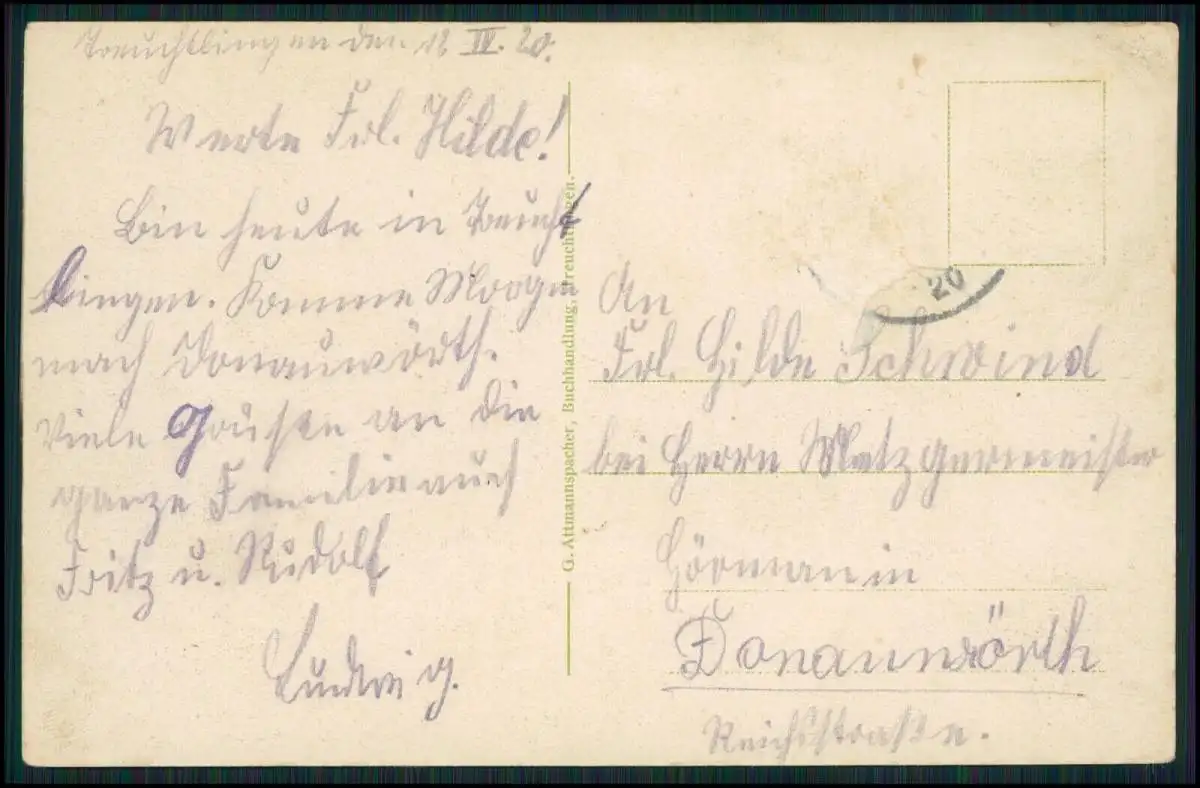 Treuchtlingen den 12 IV. 20.
Werte Frl. Hilde!
Bin heute in Treucht
lingen. Komme Morgen
nach Donauwörth.
Viele Grüße an die
ganze Familie auch
Fritz u. Rudolf
Ludwig.
G. Attmannspacher, Buchhandlung, Treuchtlingen.
20
An
Frl. Hilde Schwind
bei Herrn Metzgermeister
Hörman in
Donauwörth
Reichsstraße.